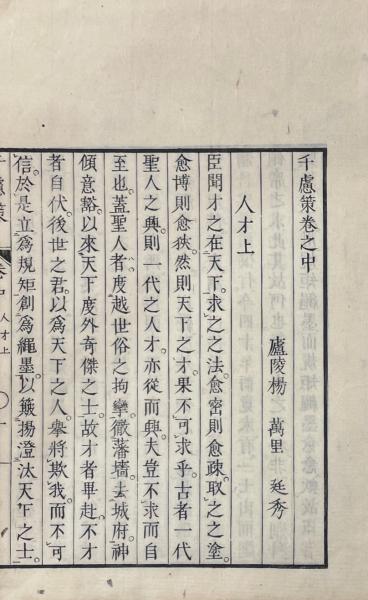 千慮策卷之中
廬陵楊萬里廷秀
人才上
臣聞才之在天下求之之法愈密則愈疎取之之塗
愈博則愈狹然則天下之才果不可求乎古者一代
聖人之興則一代之人才亦從而興夫豈不求而自
至也蓋聖人者度越世俗之拘攣徹藩墻去城府神
傾意豁以來天下度外奇傑之士故才者畢赴不才
者自伏後世之君以為天下之人舉將欺我而不可
信於是立為規矩創為繩墨以簸揚澄汰天下之士
千慮策 卷中 人才上 一